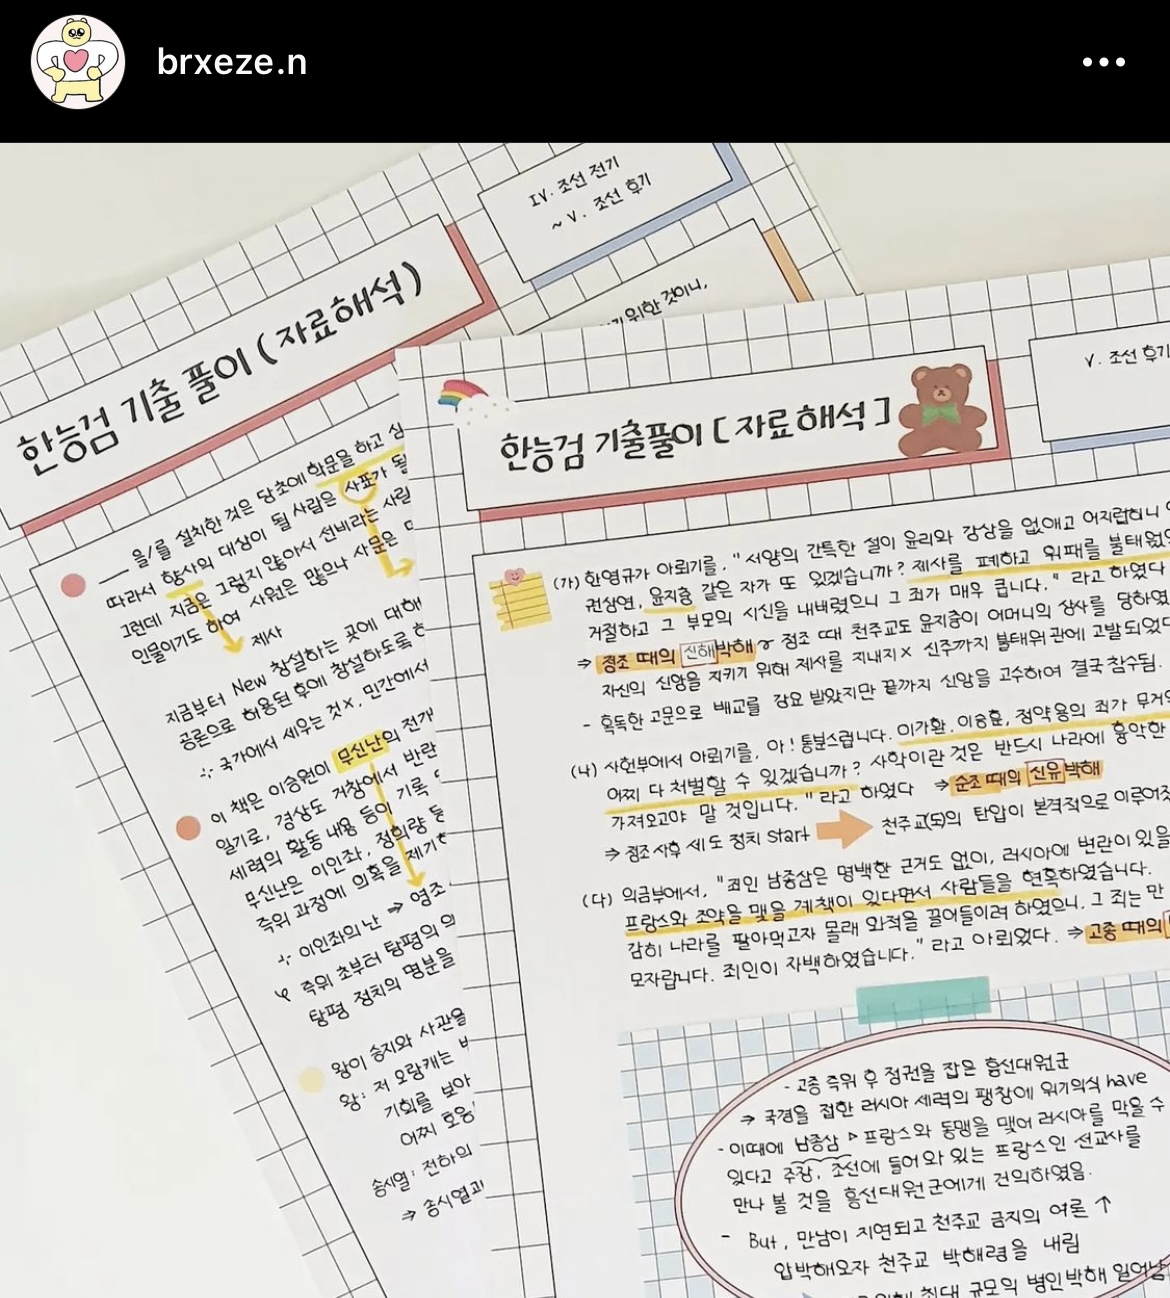 brxeze.n
IV. 조선 전기
~ V. 조선 후기
위한 것이니,
한능검 기출 풀이 (자료해석)
을/를 설치한 것은 당초에 학문을 하고 심
따라서 향사의 대상이 될 사람은 사표가 될
그런데 지금은 그렇지 않아서 선비라는 사람
인물이기도 하여 사원은 많으나 사문은
제사
지금부터 New 창설하는 곳에 대해
공론으로 허용된 후에 창설하도록
∴ 국가에서 세우는 것 x, 민간에서
이 책은 이승원이 무신난의 전개
일기로, 경상도 거창에서 반란
세력의 활동 내용 등이 기록
무신난은 이인좌, 정희량 등
즉위 과정에 의혹을 제기
∴ 이인좌의 난 ⇒ 영조
즉위 초부터 탕평의
탕평 정치의 명분을
왕이 승지와 사관을
왕: 저 오랑캐는
기회를 보아
어찌 호응
송시열: 전하의
⇒ 송시열과
V. 조선 후기
한능검 기출풀이 [자료해석]
(가) 한영규가 아뢰기를, "서양의 간특한 설이 윤리와 강상을 없애고 어지럽히니
권상연, 윤지충 같은 자가 또 있겠습니까? 제사를 폐하고 위패를 불태웠으
거절하고 그 부모의 시신을 내버렸으니 그 죄가 매우 큽니다." 라고 하였다
⇒ 정조 때의 신해박해 ~ 정조 때 천주교도 윤지충이 어머니의 상사를 당하였
자신의 신앙을 지키기 위해 제사를 지내지 x 신주까지 불태워 관에 고발되었다
- 혹독한 고문으로 배교를 강요 받았지만 끝까지 신앙을 고수하여 결국 참수됨.
(나) 사헌부에서 아뢰기를, 아! 통분스럽니다. 이가환, 이승훈, 정약용의 죄가 무거워
어찌 다 처벌할 수 있겠습니까? 사학이란 것은 반드시 나라에 흉악한
가져오고야 말 것입니다." 라고 하였다 ⇒ 순조 때의 신유박해
⇒ 정조 사후 세도 정치 start 천주교(도)의 탄압이 본격적으로 이루어졌
(다) 의금부에서, "죄인 남종삼은 명백한 근거도 없이, 러시아에 변란이 있을
프랑스와 조약을 맺을 계책이 있다면서 사람들을 현혹하였습니다.
감히 나라를 팔아먹고자 몰래 외적을 끌어들이려 하였으니. 그 죄는 만
모자랍니다. 죄인이 자백하였습니다." 라고 아뢰었다. ⇒ 고종 때의
- 고종 즉위 후 정권을 잡은 흥선대원군
→ 국경을 접한 러시아 세력의 팽창에 위기의식 have
- 이때에 남종삼 ▷ 프랑스와 동맹을 맺어 러시아를 막을 수
있다고 주장, 조선에 들어와 있는 프랑스인 선교사를
만나 볼 것을 흥선대원군에게 건의하였음.
- But, 만남이 지연되고 천주교 금지의 여론 ↑
압박해오자 천주교 박해령을 내림
최대 규모의 병인박해 일어남